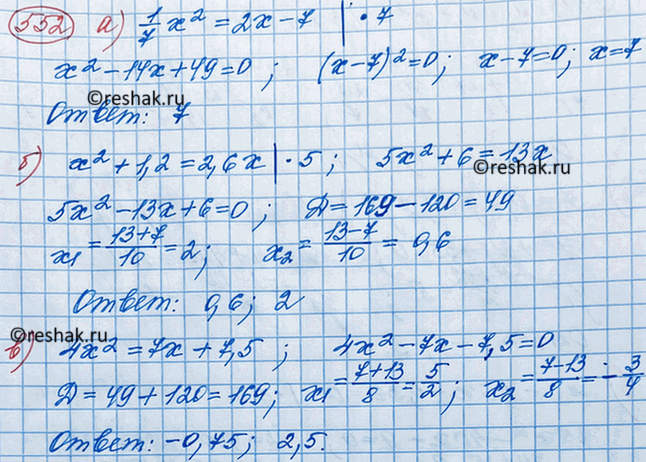 552 а) 1/7 x² = 2x - 7 | · 7
x² - 14x + 49 = 0 ; (x - 7)² = 0 ; x - 7 = 0 ; x = 7
©reshak.ru
Ответ: 7
б) x² + 1,2 = 2,6x | · 5 ; 5x² + 6 = 13x
©reshak.ru
5x² - 13x + 6 = 0 ; Д = 169 - 120 = 49
x₁ = (13+7)/10 = 2 ; x₂ = (13-7)/10 = 0,6
Ответ: 0,6 ; 2
©reshak.ru
в) 4x² = 7x + 7,5 ; 4x² - 7x - 7,5 = 0
Д = 49 + 120 = 169 ; x₁ = (7+13)/8 = 5/2 ; x₂ = (7-13)/8 = -3/4
Ответ: -0,75 ; 2,5.